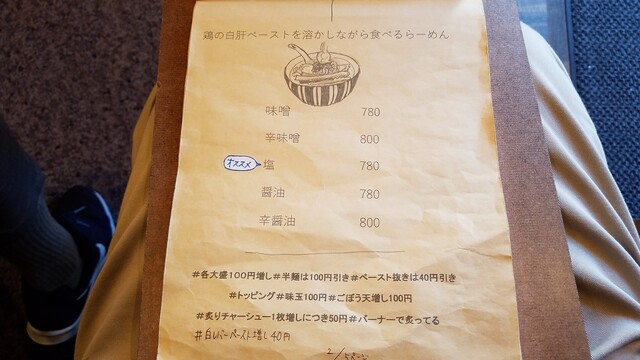 鶏の白肝ペーストを溶かしながら食べるらーめん
味噌 780
辛味噌 800
オススメ 塩 780
醤油 780
辛醤油 800
#各大盛100円増し#半麺は100円引き#ペースト抜きは40円引き
#トッピング#味玉100円#ごぼう天増し100円
#炙りチャーシュー1枚増しにつき50円#バーナーで炙ってる
#白レバーペースト増し40円